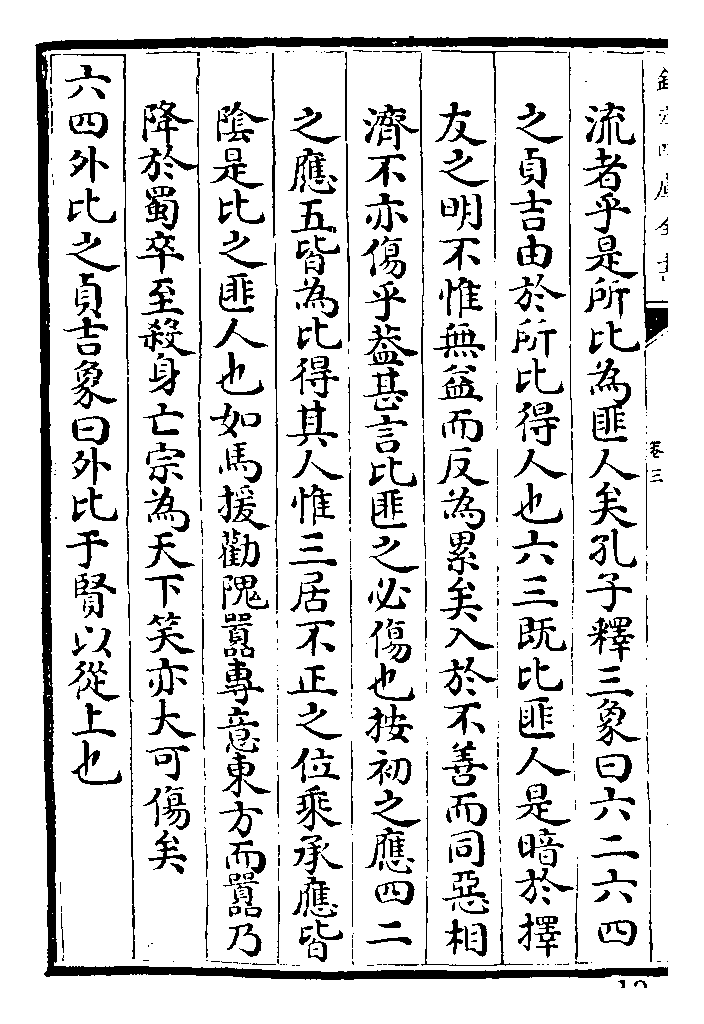 欽定四庫全書
卷三
流者乎是所比為匪人矣孔子釋三象曰六二六四
之貞吉由於所比得人也六三既比匪人是暗於擇
友之明不惟無益而反為累矣入於不善而同惡相
濟不亦傷乎葢甚言比匪之必傷也按初之應四二
之應五皆為比得其人惟三居不正之位乘承應皆
隂是比之匪人也如馬援勸隗囂專意東方而囂乃
降於蜀卒至殺身亡宗為天下笑亦大可傷矣
六四外比之貞吉象曰外比于賢以從上也